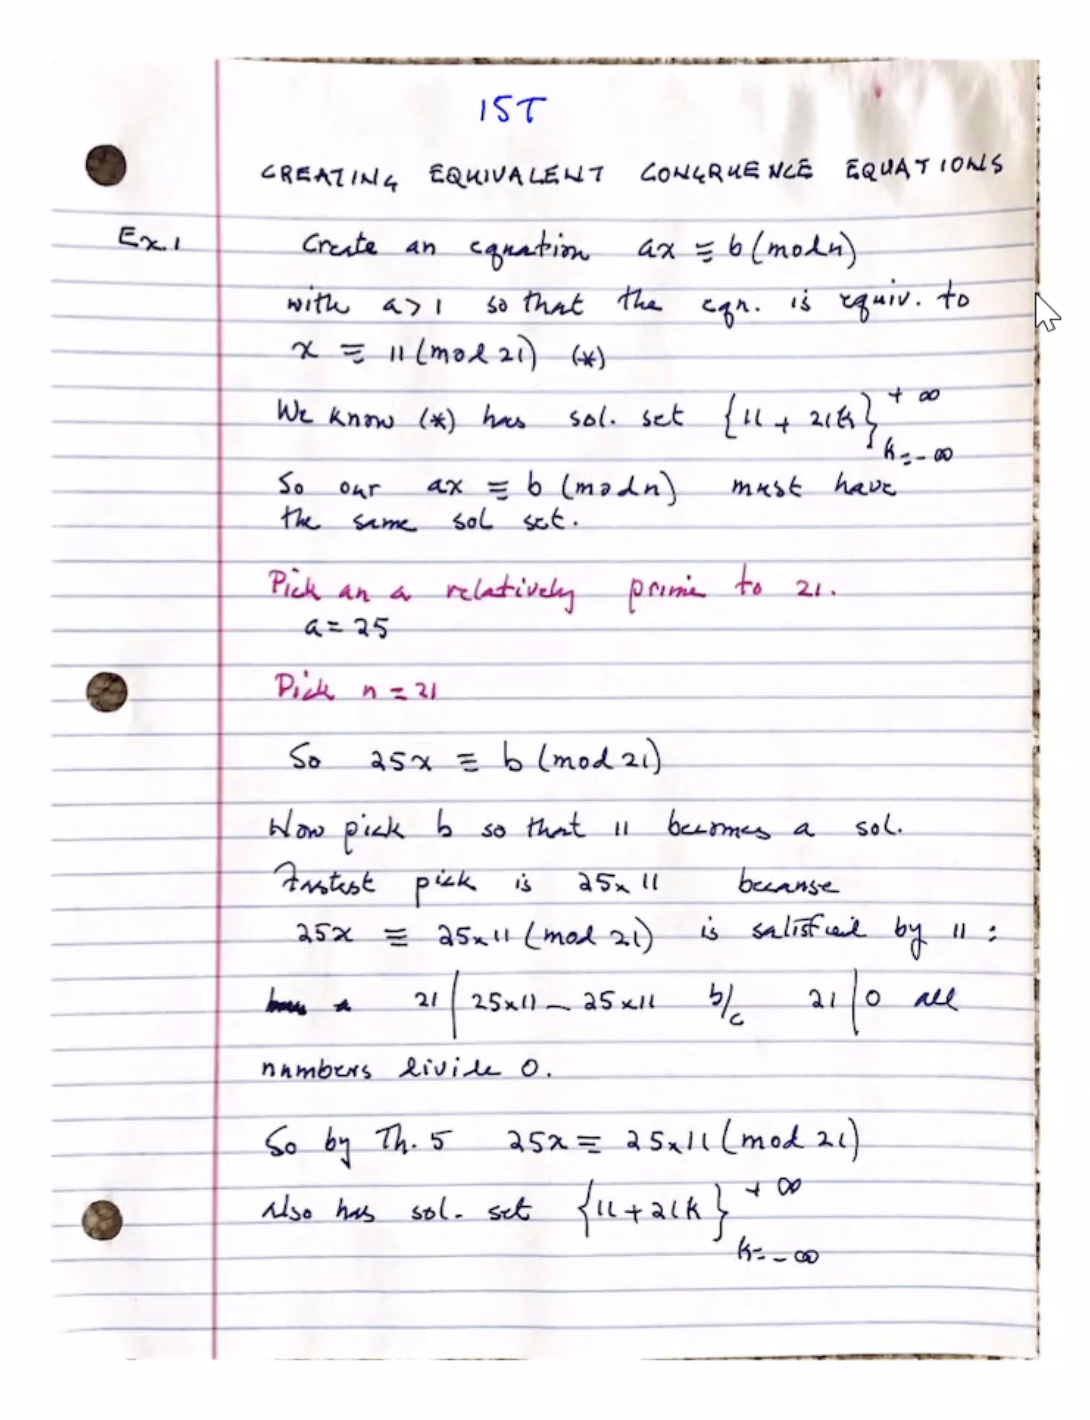 15T
CREATING EQUIVALENT CONGRUENCE EQUATIONS
Ex.1 Create an equation ax ≡ b (mod n)
with a > 1 so that the eqn. is equiv. to
x ≡ 11 (mod 21) (*)
We know (*) has sol. set {11 + 21k}^{+∞}_{k=-∞}
So our ax ≡ b (mod n) must have
the same sol set.
Pick an a relatively prime to 21.
a = 25
Pick n = 21
So 25x ≡ b (mod 21)
Now pick b so that 11 becomes a sol.
Fastest pick is 25x11 because
25x ≡ 25x11 (mod 21) is satisfied by 11 :
21 | 25x11 - 25x11 b/c 21 | 0 all
numbers divide 0.
So by Th. 5 25x ≡ 25x11 (mod 21)
Also has sol. set {11 + 21k}^{+∞}_{k=-∞}